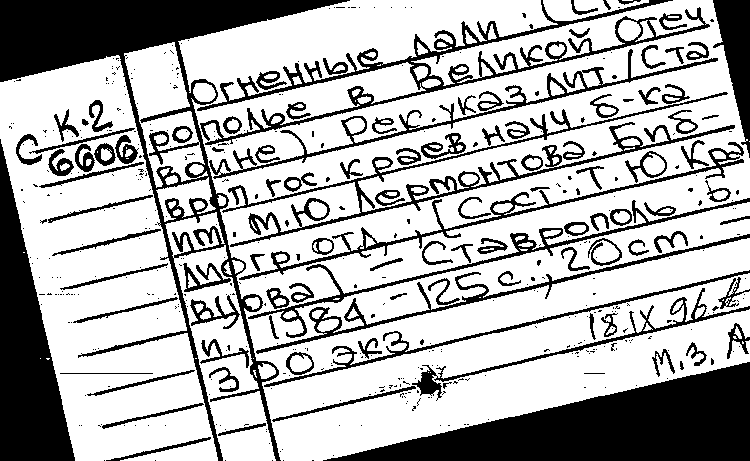 С К.2
6606
Огненные дали : (Ста
рополье в Великой Отеч.
войне) : Рек. указ. лит. / Ста-
вроп. гос. краев. науч. б-ка
им. М.Ю. Лермонтова. Биб-
лиогр. отд. ; [Сост.: Т.Ю. Кра
вцова]. — Ставрополь : Б.
и., 1984. - 125 с. ; 20 cm. —
300 экз.
18.IX 96.
М.З. А